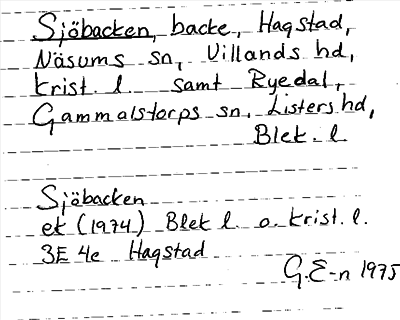 Sjöbacken, backe, Hagstad,
Näsums sn, Villands hd,
Krist. l. samt Ryedal,
Gammalstorps sn, Listers hd,
Blek. l.
Sjöbacken
ek (1974) Blek l. o. Krist. l.
3E 4e Hagstad
G.E-n 1975